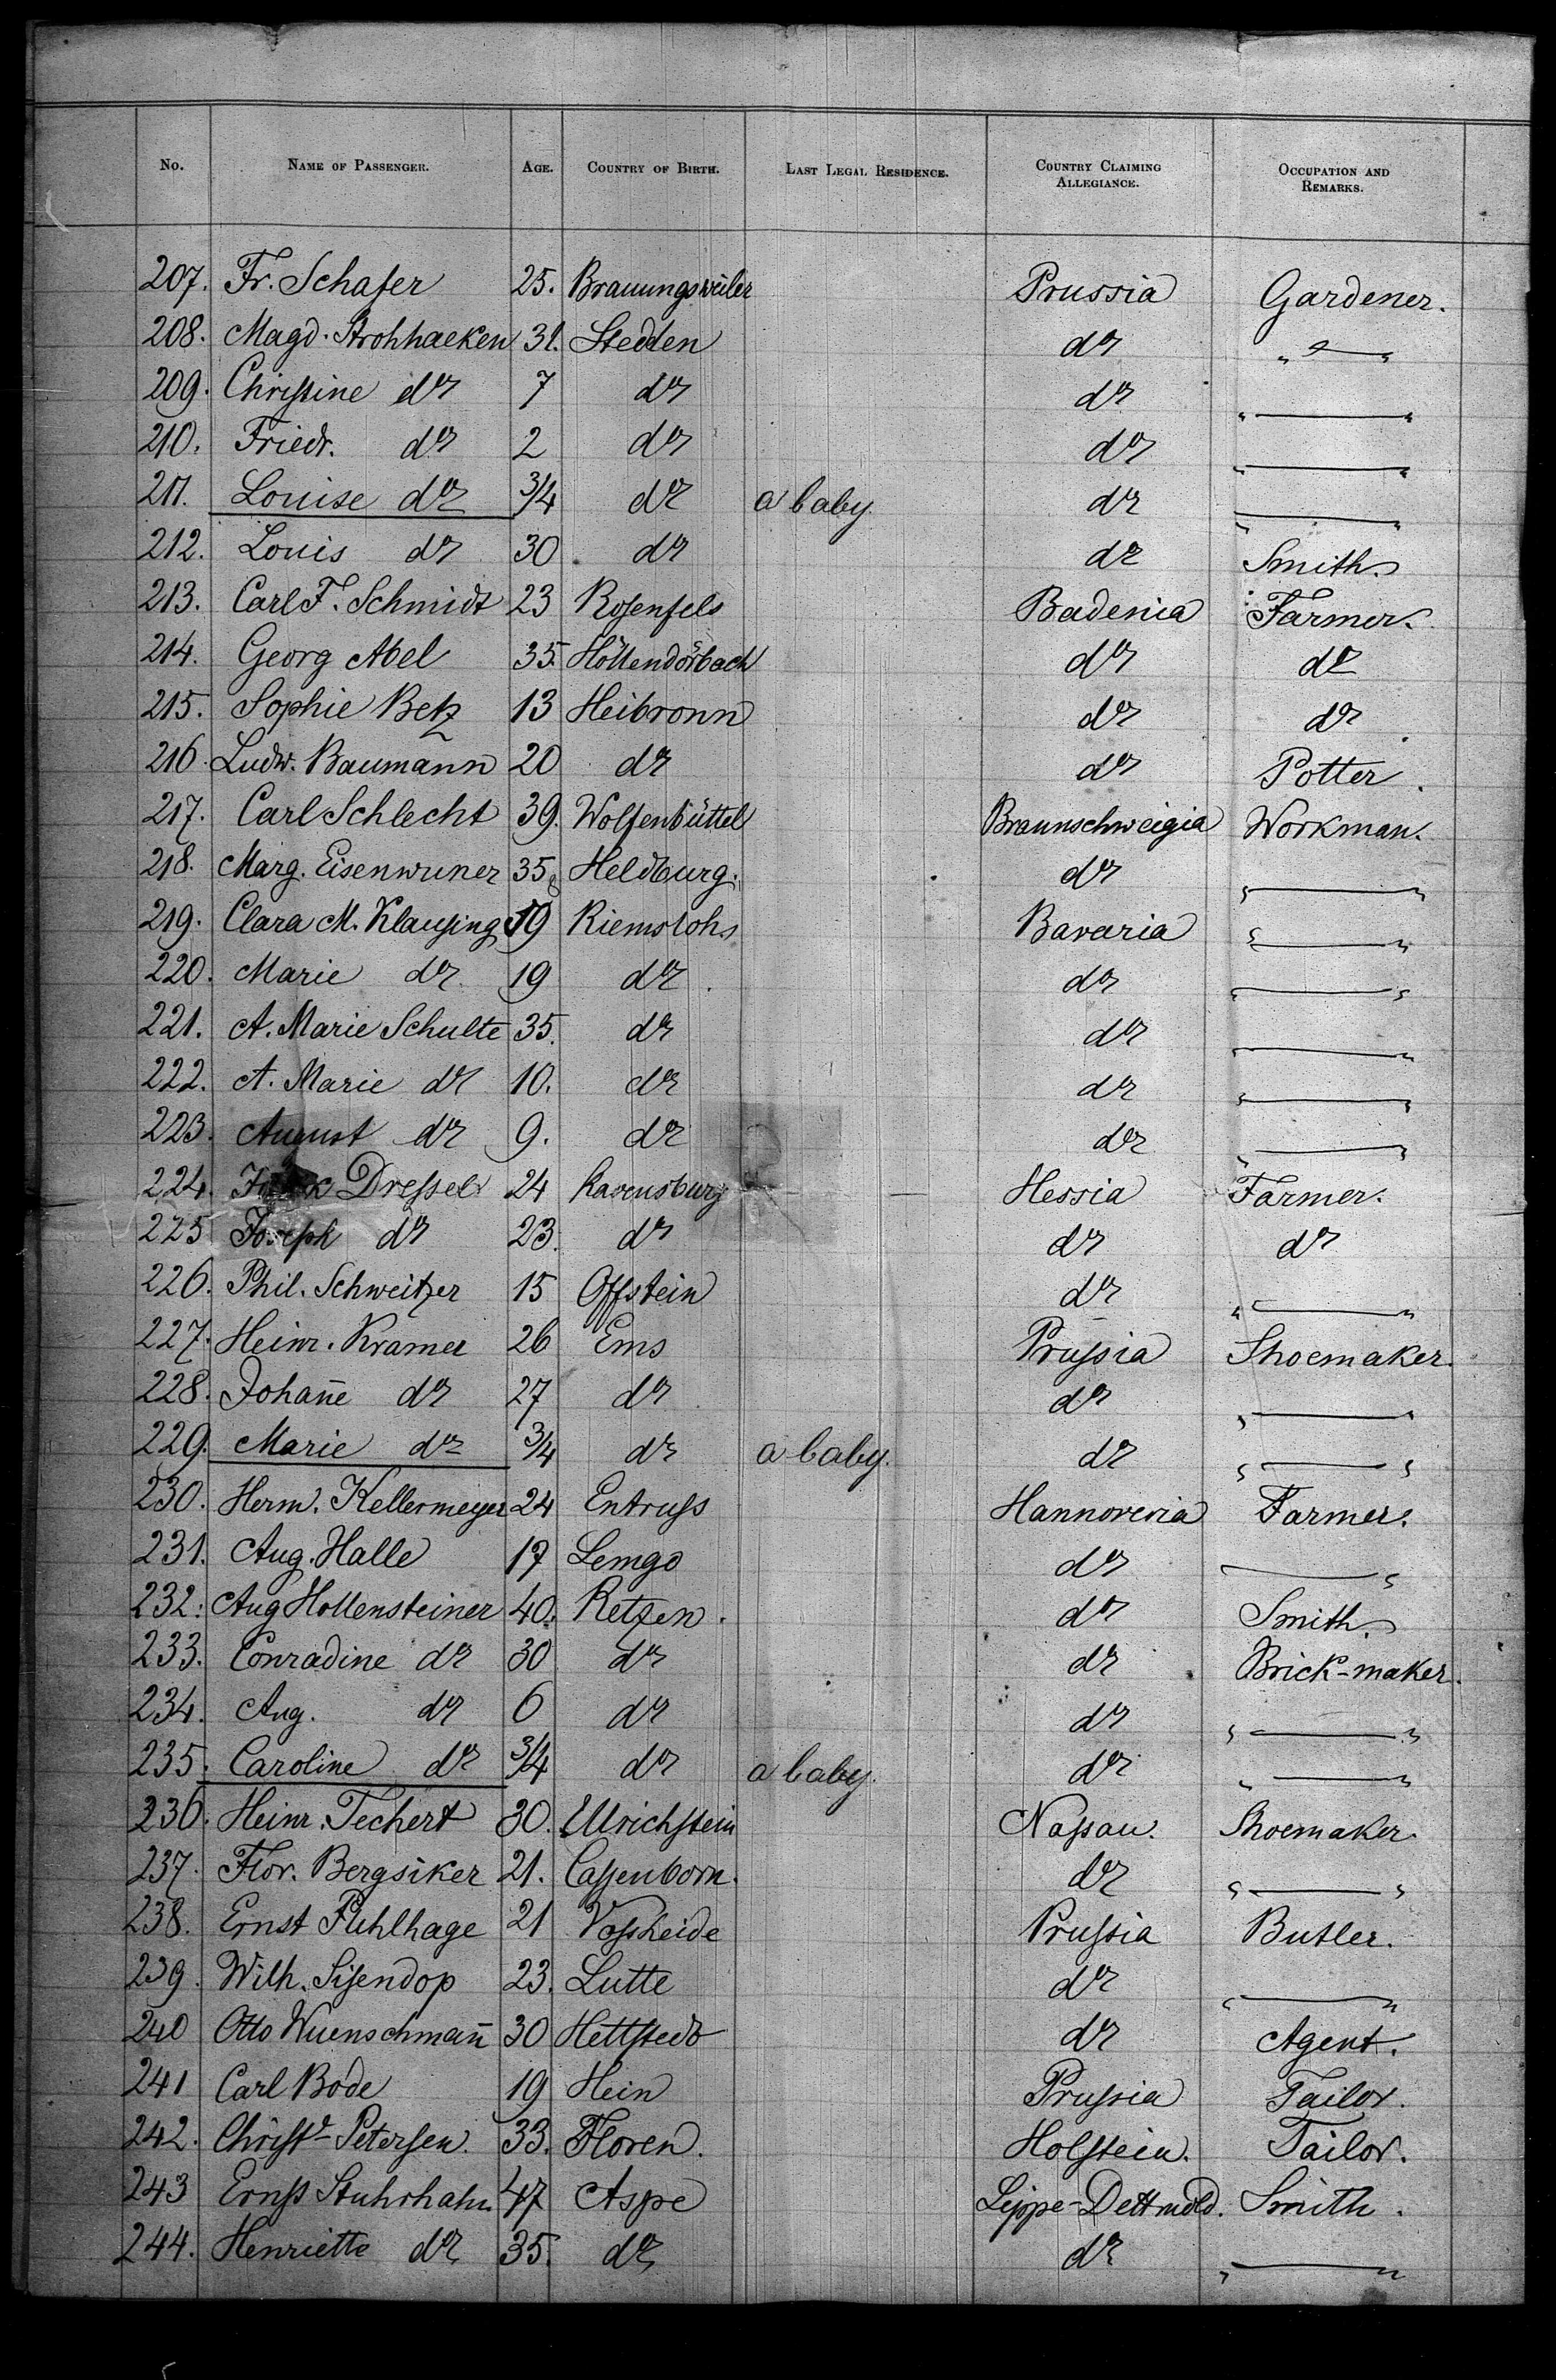 No. NAME OF PASSENGER. AGE. COUNTRY OF BIRTH. LAST LEGAL RESIDENCE. COUNTRY CLAIMING ALLEGIANCE. OCCUPATION AND REMARKS.
207. Fr. Schafer 25. Brauungsweiler Prussia Gardener.
208. Magd. Strohhaeken 31. Stedten do " — "
209. Christine do 7 do do " — "
210. Friedr. do 2 do do " — "
211. Louise do 3/4 do a baby. do " — "
212. Louis do 30 do do Smith.
213. Carl F. Schmidt 23 Rosenfels Badenia Farmer.
214. Georg Abel 35. Höllendörbach do do
215. Sophie Betz 13 Heibronn do do
216. Ludw. Baumann 20 do do Potter.
217. Carl Schlecht 39. Wolfenbüttel Braunschweigia Workman.
218. Marg. Eisenwuner 35 Heldburg. do " — "
219. Clara M. Klausing 19 Riemslohs Bavaria " — "
220. Marie do 19 do do " — "
221. A. Marie Schulte 35. do do " — "
222. A. Marie do 10. do do " — "
223. August do 9. do do " — "
224. Dressel 24 Ravensburg Hessia Farmer.
225 Joseph do 23. do do do
226. Phil. Schweitzer 15 Offstein do " — "
227. Heinr. Kramer 26 Ems Prussia Shoemaker.
228. Johañe do 27 do do " — "
229. Marie do 3/4 do a baby. do " — "
230. Herm. Kellermeyer 24 Entruss Hannoveria Farmer.
231. Aug. Halle 17 Lemgo do — "
232. Aug Hollensteiner 40. Retzen. do Smith.
233. Conradine do 30 do do Brick-maker.
234. Aug. do 6 do do " — "
235. Caroline do 3/4 do a baby. do " — "
236. Heinr. Techert 30. Ulrichstein Nassau. Shoemaker.
237. Flor. Bergsiker 21. Cassenborn. do " — "
238. Ernst Puhlhage 21 Vossheide Prussia Butler.
239. Wilh. Sisendop 23. Lutte do " — "
240 Otto Wuenschmañ 30 Hettstedt do Agent.
241 Carl Bode 19 Hein Prussia Tailor.
242. Christn Petersen. 33. Floren. Holstein. Tailor.
243 Ernst Stuhrhahn 47 Aspe Lippe-Dettmold. Smith.
244. Henriette do 35. do do " — "